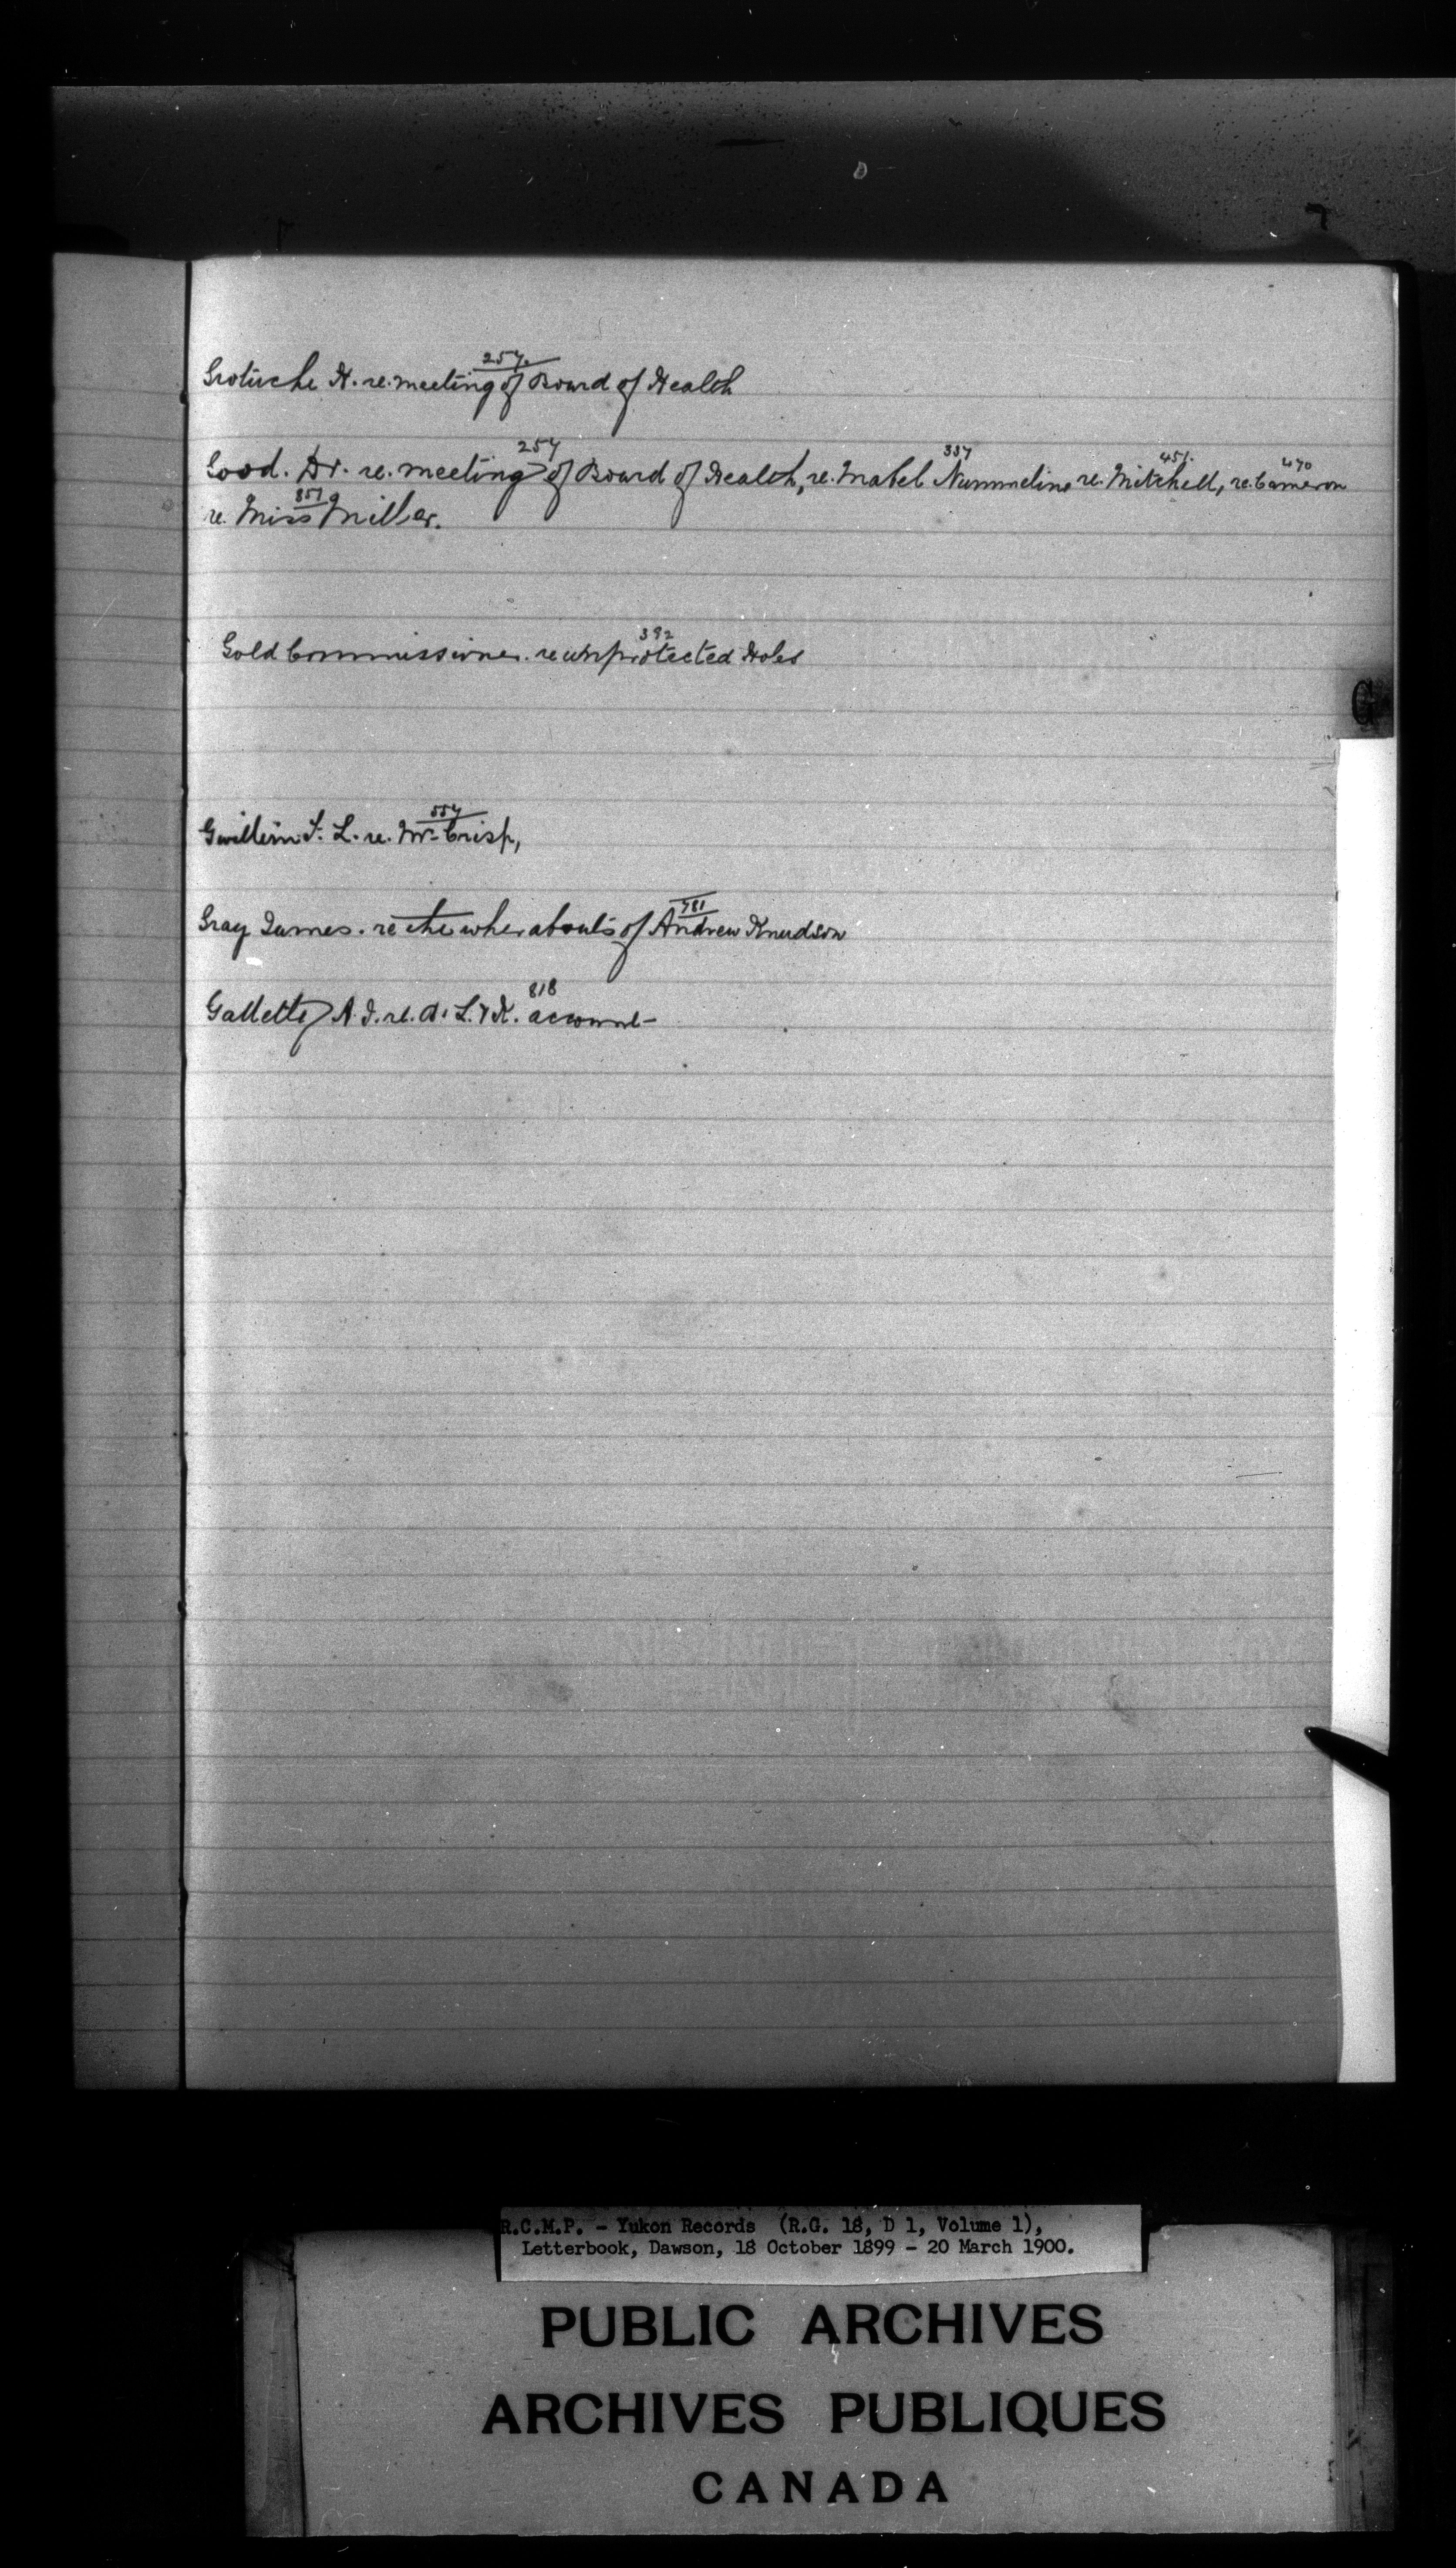 257
Grotsche H. re. meeting of Board of Health
257 337 451. 470
Good. Dr. re. meeting of Board of Health, re. Mabel Nummeline re. Mitchell, re. Cameron
857
re. Miss Miller.
392
Gold Commissioner. re unprotected Holes
G
557
Gwillim F. L. re. Mr. Crisp,
781
Gray James. re the wherabouts of Andrew Knudson
818
Galletly A. J. re. account
R.C.M.P. - Yukon Records (R.G. 18, D 1, Volume 1),
Letterbook, Dawson, 18 October 1899 - 20 March 1900.
PUBLIC ARCHIVES
ARCHIVES PUBLIQUES
CANADA